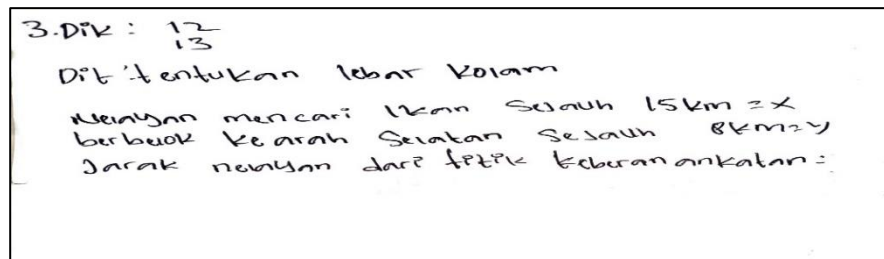 3. Dik : 12
13
Dit : tentukan lebar kolam
Nelayan mencari ikan sejauh 15 km = x
berbelok ke arah selatan sejauh 8 km = y
Jarak nelayan dari titik keberanankatan :